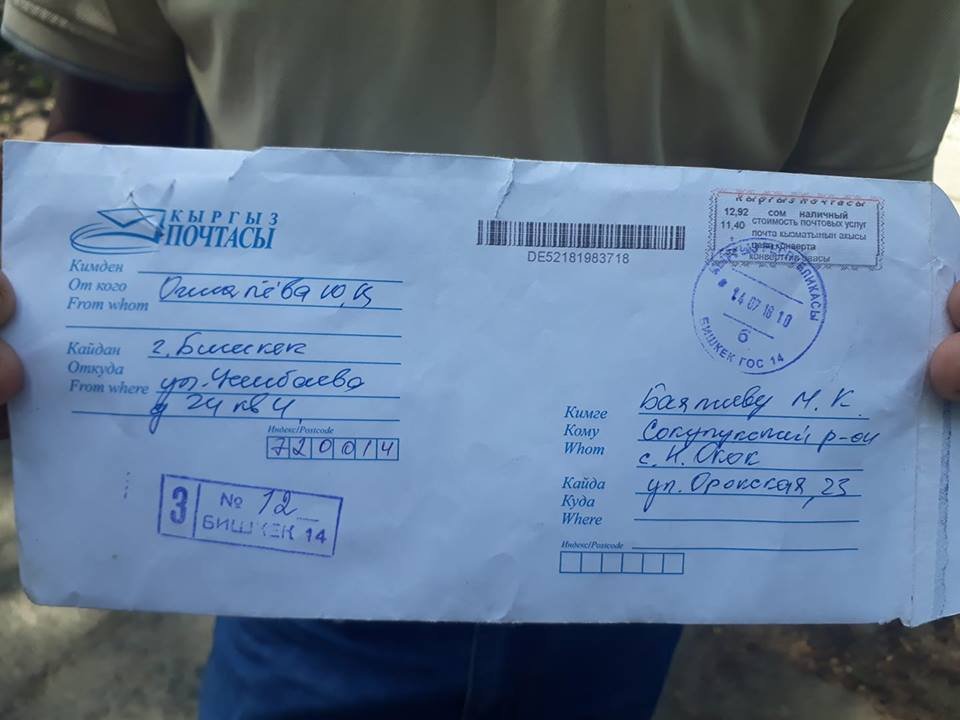 КЫРГЫЗ
ПОЧТАСЫ
Кимден
От кого
From whom
Кайдан г. Бишкек
Откуда
From where ул.
д 24 кв 4
Индекс/Postcode
720014
З № 12
БИШКЕК 14
DE52181983718
Кыргыз почтасы
12,92 сом наличный
11,40 стоимость почтовых услуг
почта кызматынын акысы
цена конверта
конверттин баасы
КЫРГЫЗ РЕСПУБЛИКАСЫ
14 07 18 18
б
БИШКЕК ГОС 14
Кимге М. К.
Кому Сокулукский р-он
Whom с.
Кайда ул. 23
Куда
Where
Индекс/Postcode